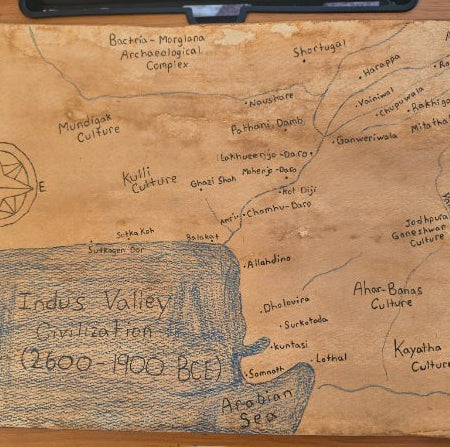 Bactria-Morglana
Archaeological
Complex
Shortugal
Harappa
Naushare
Vainiwal
Chupuwala
Rakhiga
Mundigak
Culture
Pathani Damb
Mitathal
Ganweriwala
Lakhueenjo-Daro
Kulli
Culture
Ghazi Shah
Mohenjo-Daro
Kot Diji
E
Amri
Chanhu-Daro
Jodhpura
Ganeshwar
Culture
Sutka Koh
Balakot
Sutkagen Dor
Allahdino
Indus Valley
Civilization
(2600-1900 BCE)
Dholovira
Ahar-Banas
Culture
Surkotada
Kuntasi
Lothal
Kayatha
Culture
Somnath
Arabian
Sea